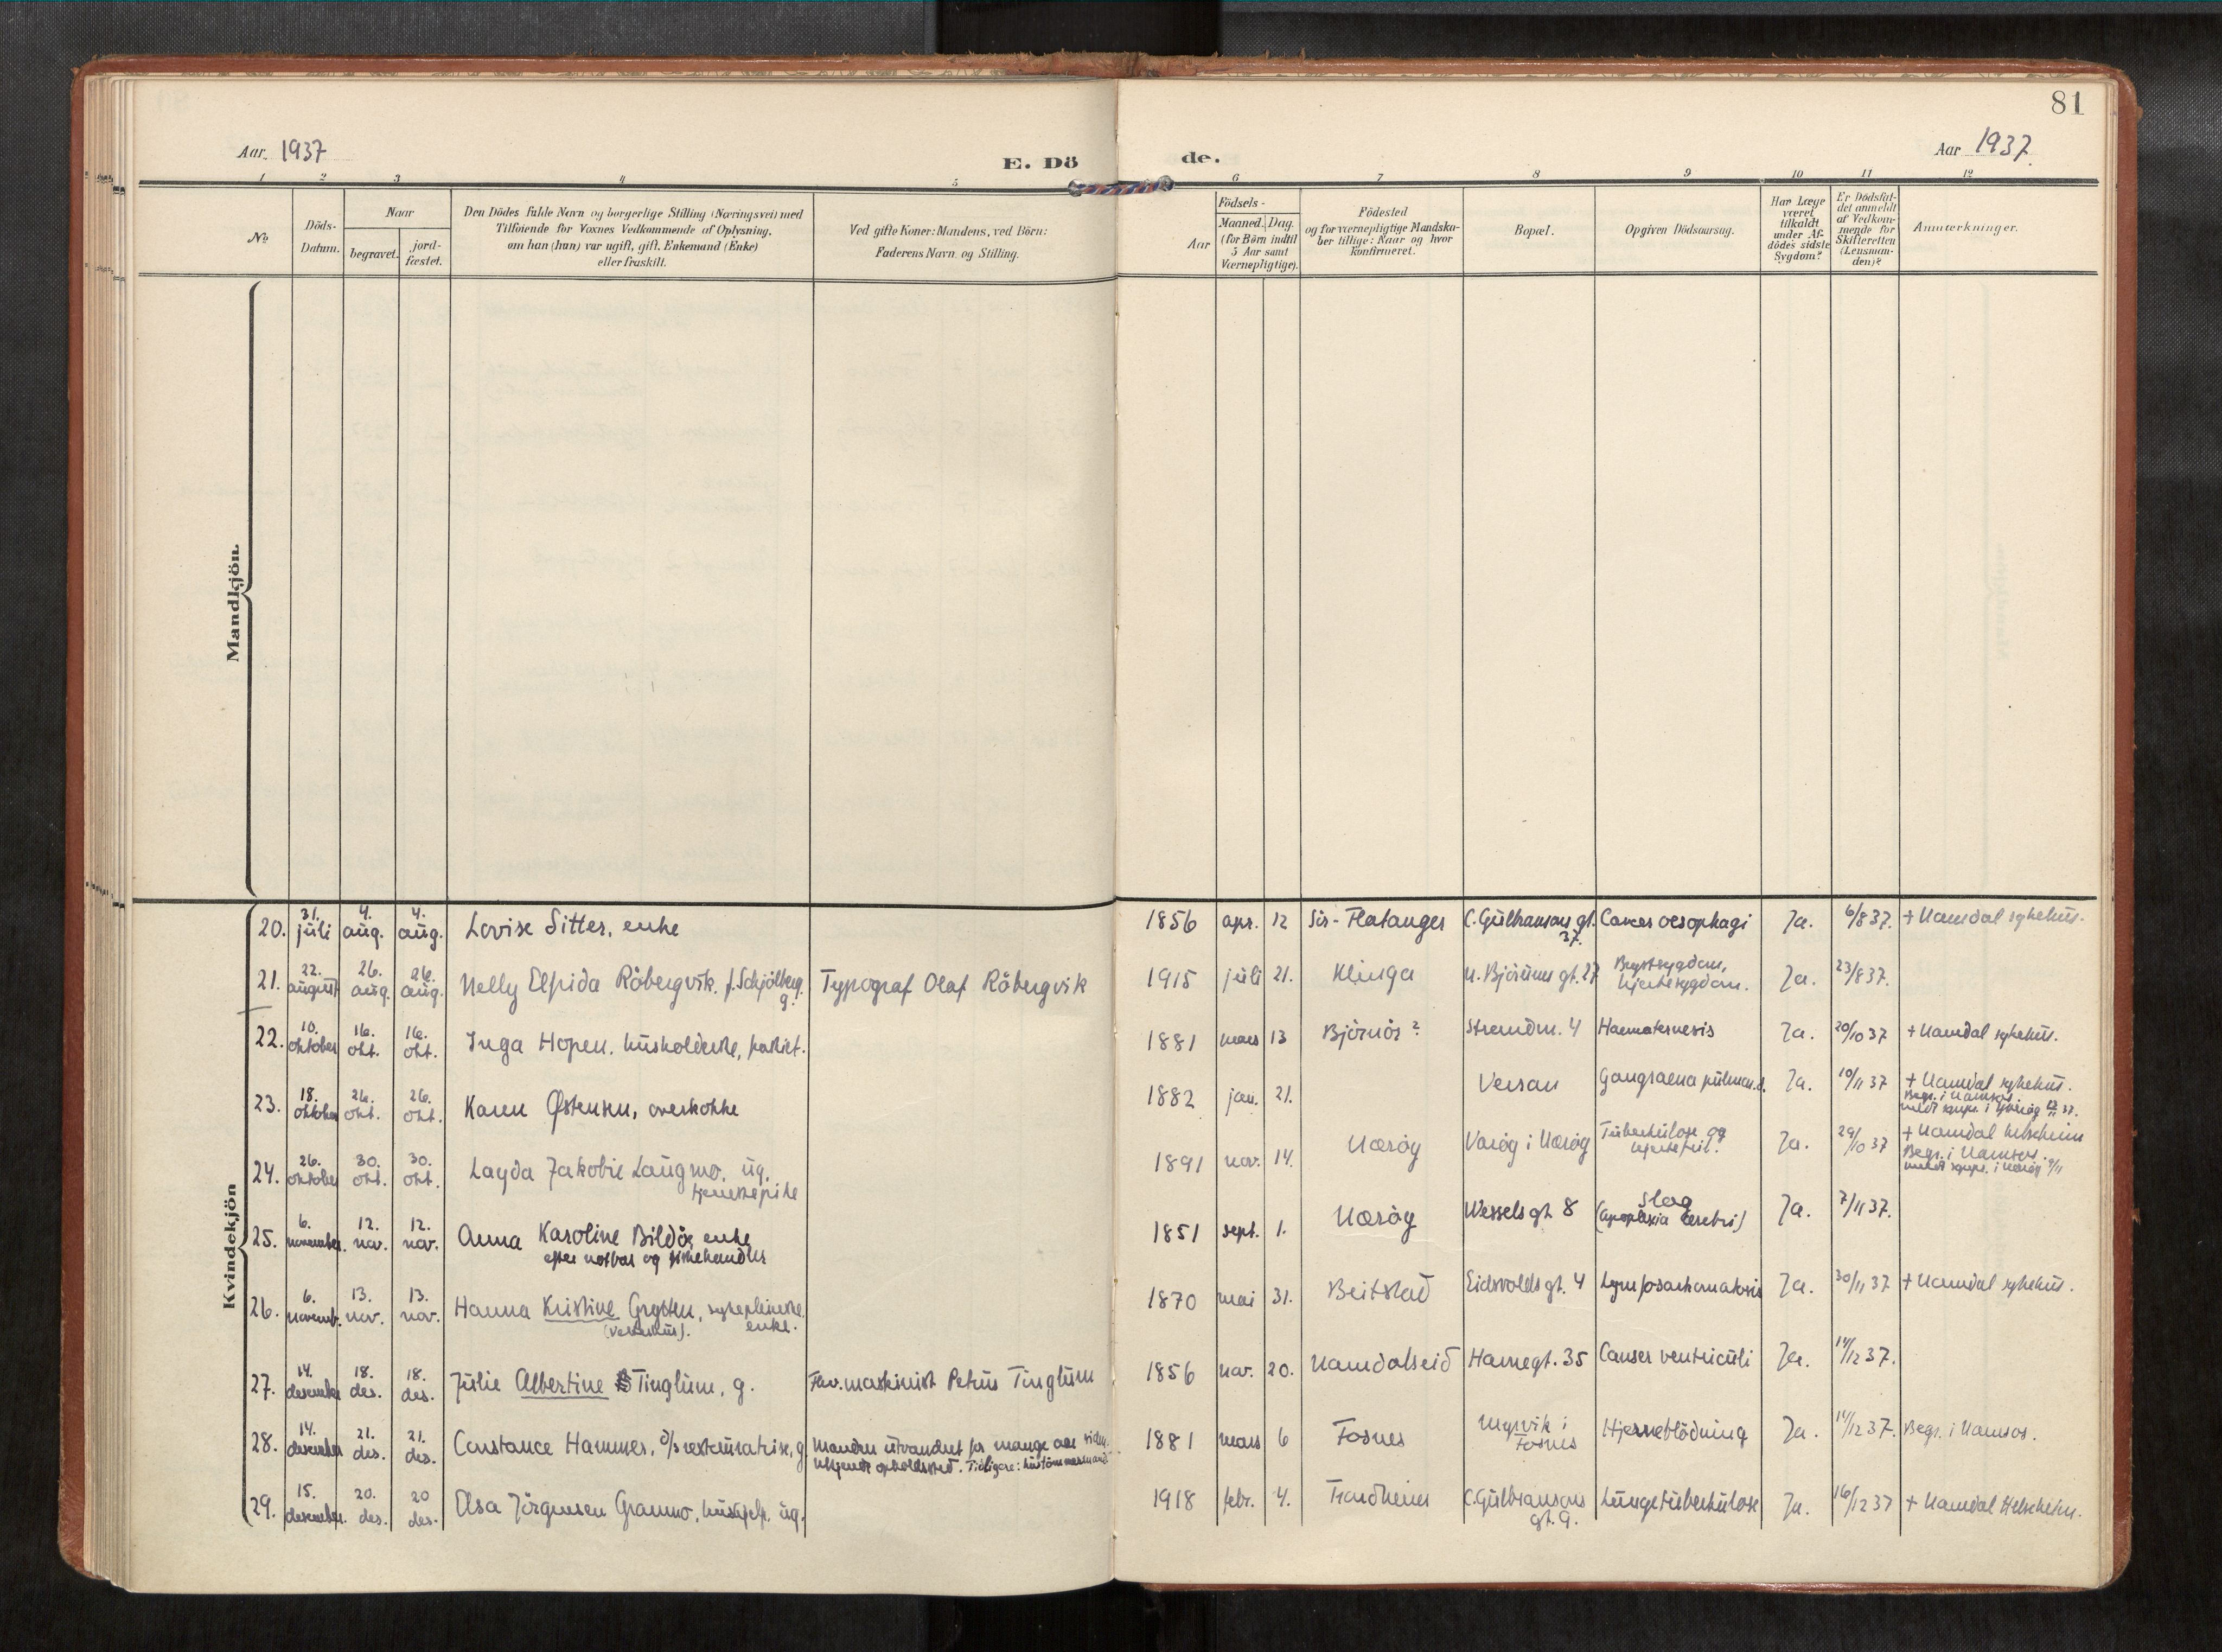 81
Aar 1937
E. Dö
de.
Aar 1937.
1 2 3 4 5 6 7 8 9 10 11 12
No
Döds-
Datum.
Naar
begravet.
jord-
fæstet.
Den Dödes fulde Navn og borgerlige Stilling (Næringsvei) med
Tilföiende for Voxnes Vedkommende af Oplysning,
om han (hun) var ugift, gift, Enkemand (Enke)
eller fraskilt.
Ved gifte Koner: Mandens, ved Börn:
Faderens Navn og Stilling.
Födsels-
Aar
Maaned. Dag.
(for Børn indtil
5 Aar samt
Værnepligtige).
Födested
og for værnepligtige Mandska-
ber tillige: Naar og hvor
konfirmeret.
Bopæl.
Opgiven Dödsaarsag.
Har Læge
været
tilkaldt
under Af-
dödes sidste
Sygdom?
Er Dödsfal-
det anmeldt
af Vedkom-
mende for
Skifteretten
(Lensman-
den)?
Anmærkninger.
Mandkjön.
Kvindekjön
20. 31. juli 4. aug. 4. aug. Lovise Sitter, enke 1856 apr. 12 Sør-Flatanger C. Gulbransons gt. 37. Cancer oesophagi Ja. 6/8 37. + Namdal sykehus.
21. 22. august 26. aug. 26. aug. Nelly Elpida Råbergvik, f. Schjölberg. g. Typograf Olaf Råbergvik 1915 juli 21. Klinga N. Bjørums gt. 27 Brystsygdom, hjertesygdom. Ja. 23/8 37.
22. 10. oktober 16. okt. 16. okt. Inga Hopen, husholderske, 1881 mars 13 Bjørnør? Strandv. 4 Haematemesis Ja. 20/10 37 + Namdal sykehus.
23. 18. oktober 26. okt. 26. okt. Karen Østensen, overkokke 1882 jan. 21. Gangraena pulmon. Ja. 10/11 37 + Namdal sykehus.
Begr. i Namsos.
24. 26. oktober 30. okt. 30. okt. Layda Jakobie Laugmo, ug. tjenestepike 1891 nov. 14. Nærøy Varøy i Nærøy Tuberkulose og hjertefeil. Ja. 29/10 37 + Namdal helseheim
Begr. i Namsos.
25. 6. november. 12. nov. 12. nov. Anna Karoline Bildøe, enke
efter notbas og fiskehandler 1851 sept. 1. Nærøy Wessels gt. 8 Slag
(apoplexia cerebri) Ja. 7/11 37.
26. 6. novemb. 13. nov. 13. nov. Hanna Kristine Grytten, sykepleierske
enke. 1870 mai 31. Beitstad Eidsvolds gt. 4 Lymfosarkomatosis Ja. 30/11 37 + Namdal sykehus.
27. 14. desember 18. des. 18. des. Julie Albertine Tinglum, g. Fhv. maskinist Petrus Tinglum 1856 nov. 20. Namdalseid Havnegt. 35 Cancer ventriculi Ja. 14/12 37.
28. 14. desember 21. des. 21. des. Constance Hammer, d/s restauratrise, g. Manden utvandret for mange aar siden.
Ukjendt opholdssted. Tidligere: hustömmermand 1881 mars 6 Fosnes Myrvik i Fosnes Hjerneblödning Ja. 14/12 37. Begr. i Namsos.
29. 15. desember. 20. des. 20 des. Elsa Jörgensen Grannno, hushjelp, ug. 1918 febr. 4. Trondheim C. Gulbransons gt. 9. Lungetuberkulose Ja. 16/12 37 + Namdal Helseheim.